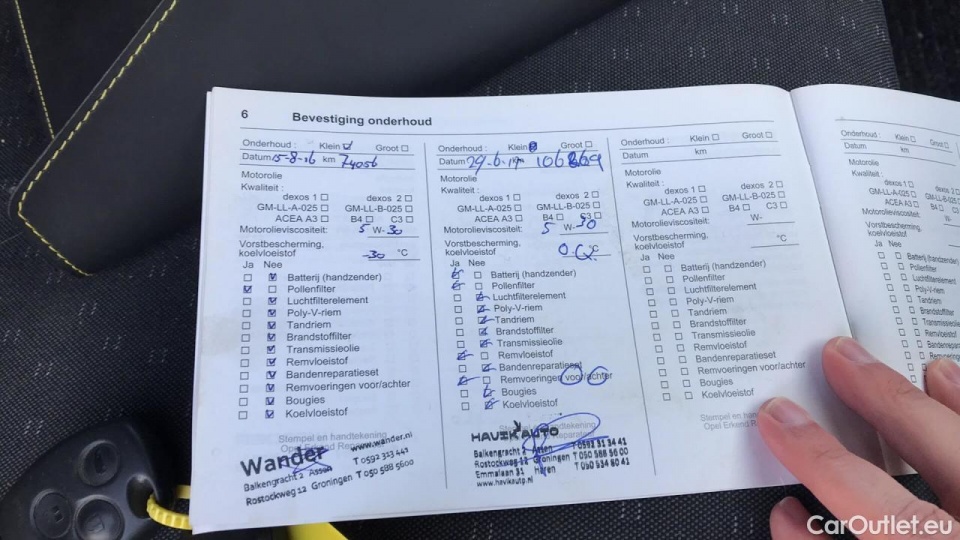 6 Bevestiging onderhoud
Onderhoud : Klein Groot
Datum 15-8-16 km 74056
Motorolie
Kwaliteit :
dexos 1 dexos 2
GM-LL-A-025 GM-LL-B-025
ACEA A3 B4 C3
Motorolieviscositeit: 5 W- 30
Vorstbescherming,
koelvloeistof -30 °C
Ja Nee
Batterij (handzender)
Pollenfilter
Luchtfilterelement
Poly-V-riem
Tandriem
Brandstoffilter
Transmissieolie
Remvloeistof
Bandenreparatieset
Remvoeringen voor/achter
Bougies
Koelvloeistof
Stempel en handtekening
Opel Erkend
Wander www.wander.nl
Balkengracht 2 Assen T 0592 313 441
Rostockweg 12 Groningen T 050 588 5600
Onderhoud : Klein Groot
Datum
Motorolie
Kwaliteit :
dexos 1 dexos 2
GM-LL-A-025 GM-LL-B-025
ACEA A3 B4 C3
Motorolieviscositeit: 5 W- 30
Vorstbescherming,
koelvloeistof °C
Ja Nee
Batterij (handzender)
Pollenfilter
Luchtfilterelement
Poly-V-riem
Tandriem
Brandstoffilter
Transmissieolie
Remvloeistof
Bandenreparatieset
Remvoeringen voor/achter
Bougies
Koelvloeistof
HAVIKAUTO
Balkengracht 2 Assen T 0592 31 34 41
Rostockweg 12 Groningen T 050 588 56 00
Emmalaan 31 Haren T 050 534 80 41
www.havikauto.nl
Onderhoud : Klein Groot
Datum km
Motorolie
Kwaliteit :
dexos 1 dexos 2
GM-LL-A-025 GM-LL-B-025
ACEA A3 B4 C3
Motorolieviscositeit: W-
Vorstbescherming,
koelvloeistof °C
Ja Nee
Batterij (handzender)
Pollenfilter
Luchtfilterelement
Poly-V-riem
Tandriem
Brandstoffilter
Transmissieolie
Remvloeistof
Bandenreparatieset
Remvoeringen voor/achter
Bougies
Koelvloeistof
Stempel en
Opel Erkend
Onderhoud : Klein Groot
Datum km
Motorolie
Kwaliteit :
dexos 1 dexos 2
GM-LL-A-025
ACEA A3
Motorolieviscositeit:
Vorstbescherming,
koelvloeistof
Ja Nee
Batterij
Pollenfilter
Poly-V-riem
Tandriem
CarOutlet.eu